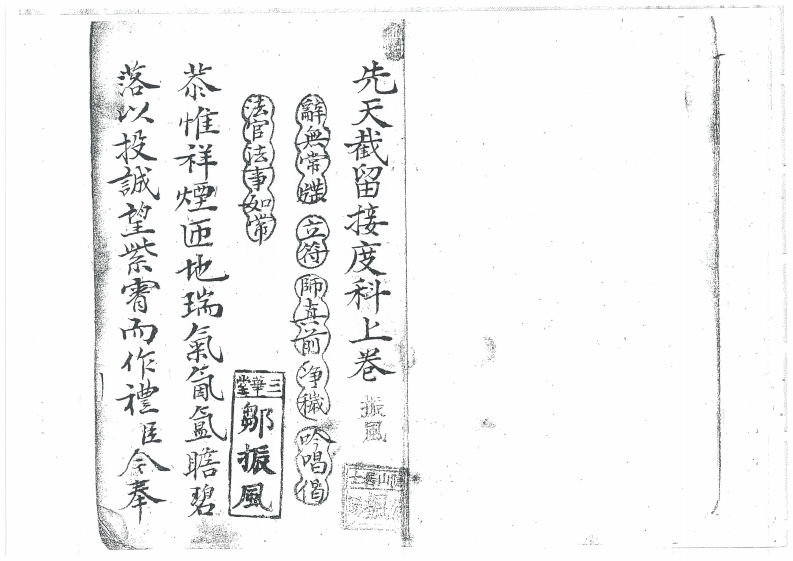 先天截留接度科上卷
振風
辭無常 立符 師真前 净穢 吟唱偈
法官法事如常
三華堂
鄒振風
恭惟祥煙匝地瑞氣氤氳瞻碧
落以投誠望紫霄而作禮臣令奉